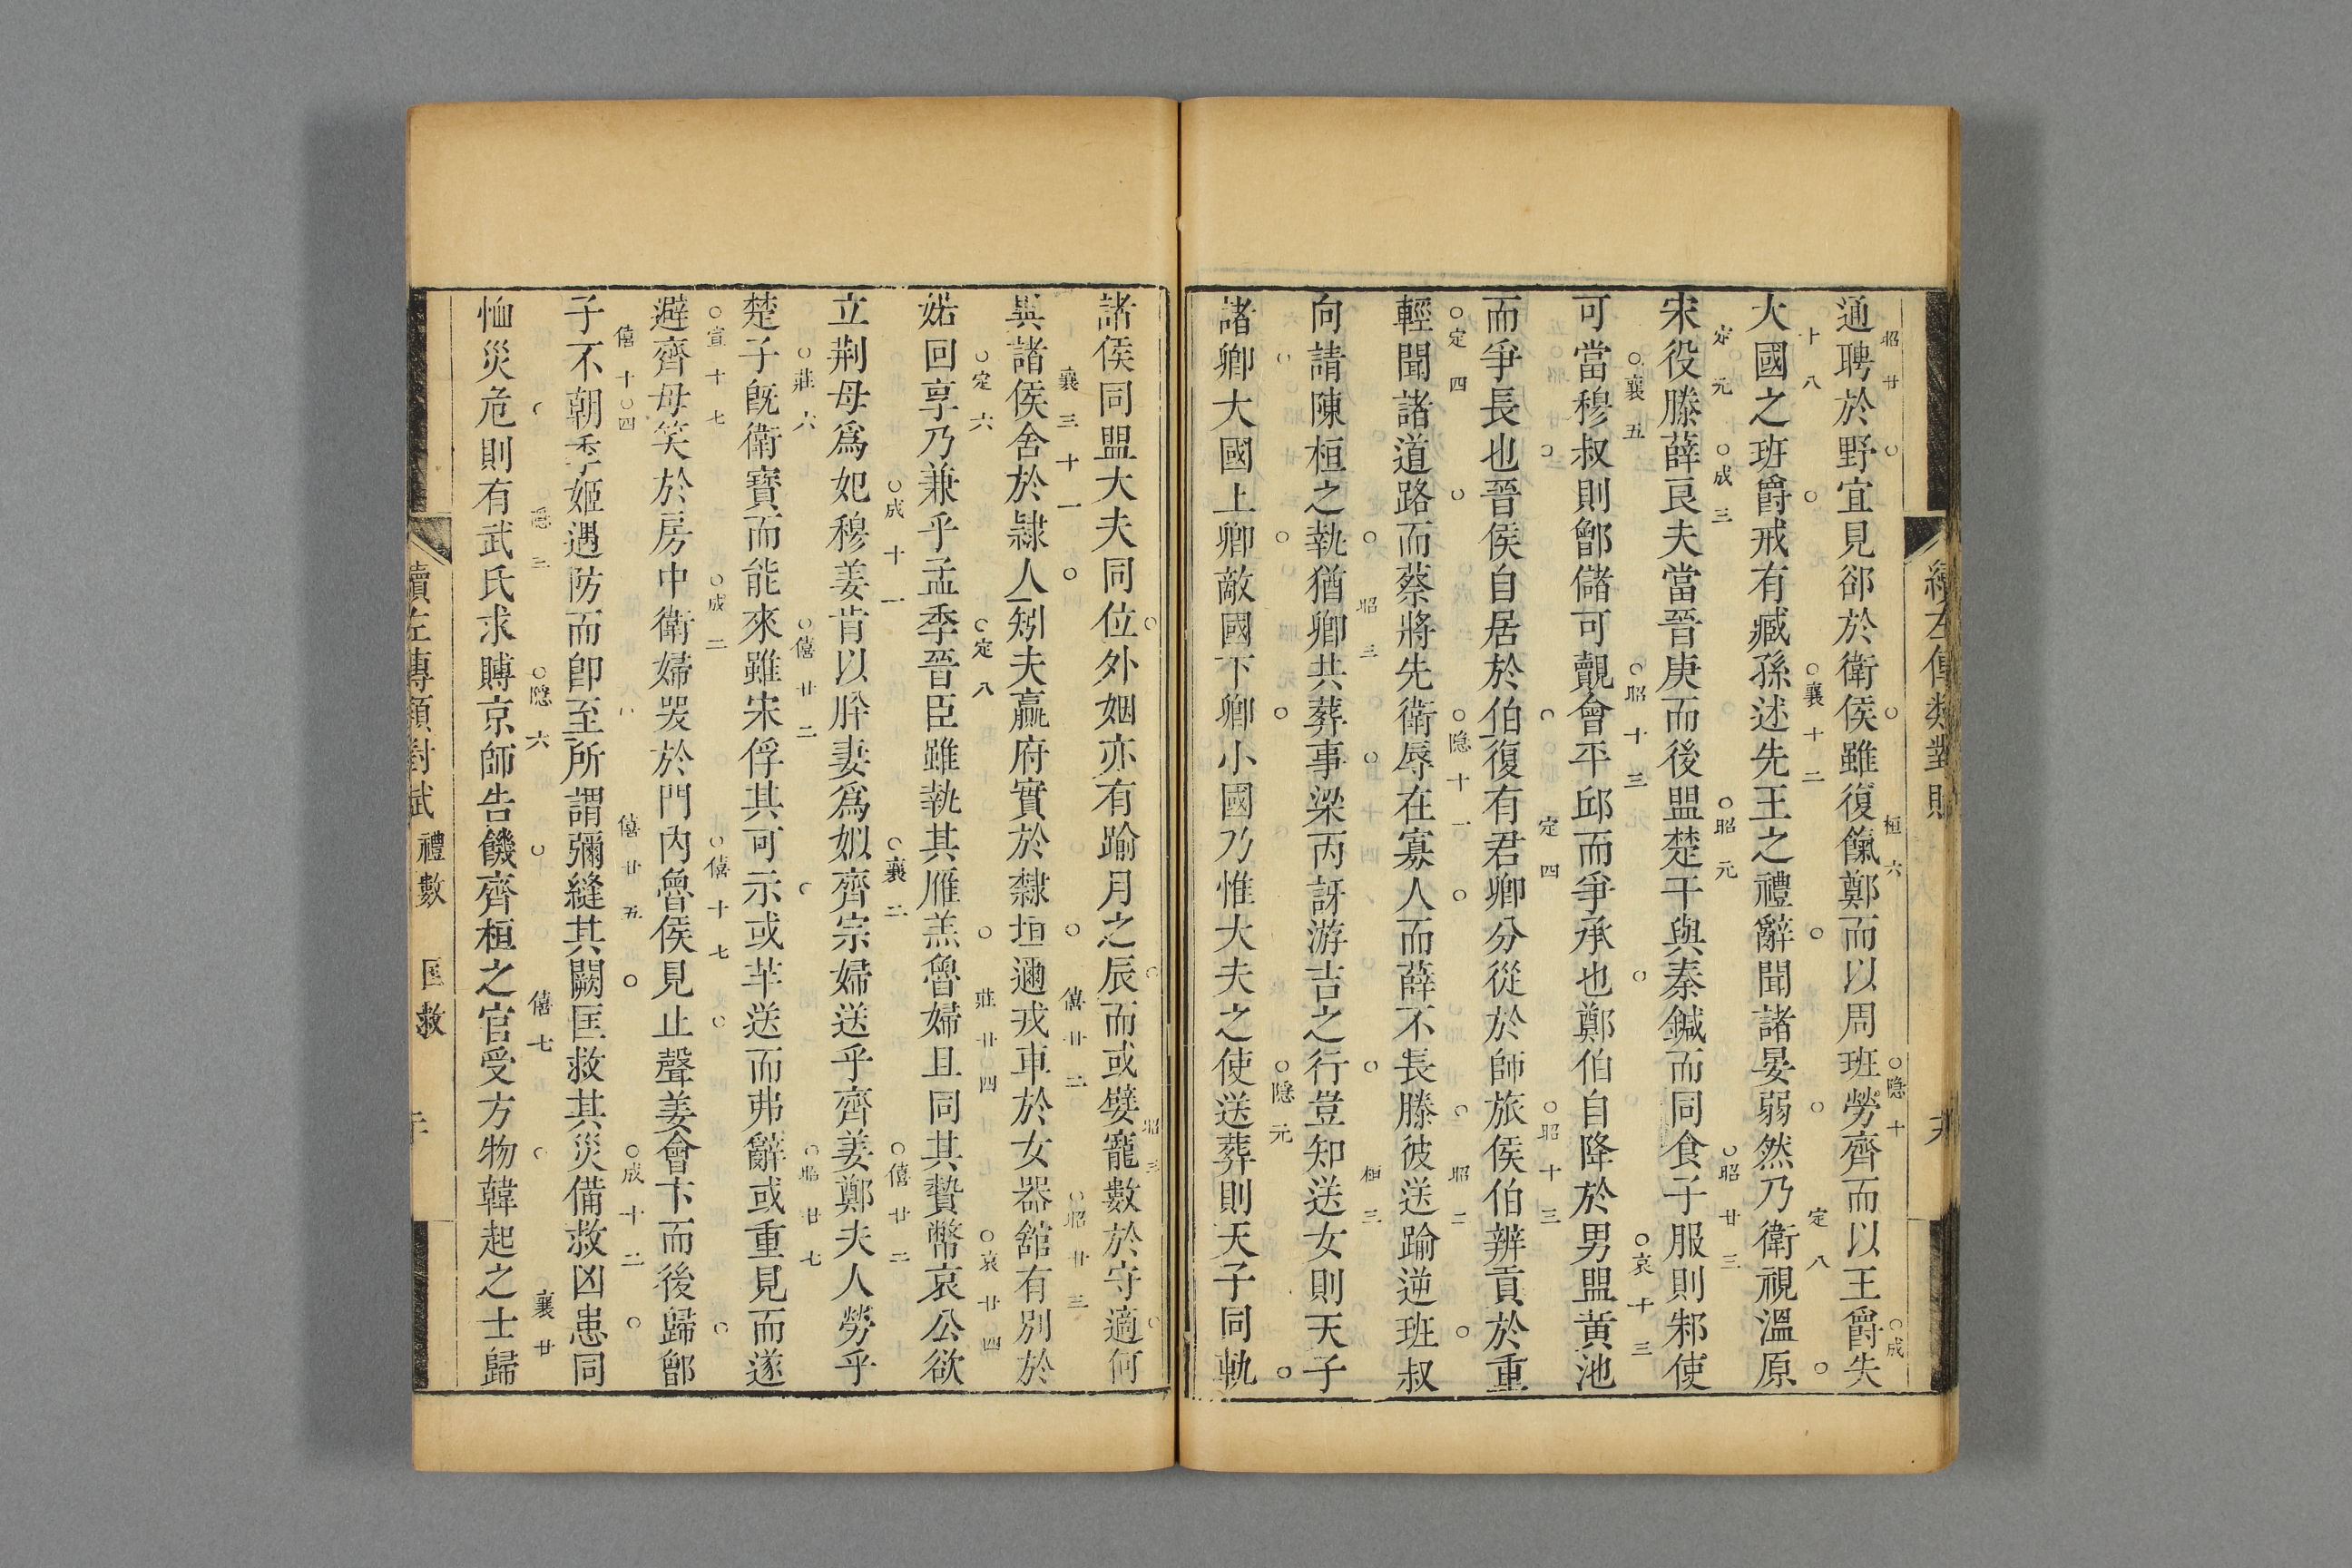 通聘於野宜見郤於衛侯雖復餼鄭而以周班勞齊而以王爵失
昭廿 桓六 隱十 成
大國之班爵戒有臧孫述先王之禮辭聞諸晏弱然乃衛視溫原
十八 襄十二 定八
宋役滕薛良夫當晉庚而後盟楚干與秦鍼而同食子服則邾使
定元 成三 昭元 昭廿三
可當穆叔則鄫儲可覿會平邱而爭承也鄭伯自降於男盟黃池
襄五 昭十三 哀十三
而爭長也晉侯自居於伯復有君卿分從於師旅侯伯辨貢於重
定四 昭十三
輕聞諸道路而蔡將先衛辱在寡人而薛不長滕彼送踰逆班叔
定四 隱十一 昭二
向請陳桓之執猶卿共葬事梁丙訝游吉之行豈知送女則天子
昭三 桓三
諸卿大國上卿敵國下卿小國乃惟大夫之使送葬則天子同軌
隱元
諸侯同盟大夫同位外姻亦有踰月之辰而或嬖寵數於守適何
昭三
異諸侯舍於隸人矧夫贏府實於隸垣邇戎車於女器舘有別於
襄三十一 僖廿二 昭廿三
婼回享乃兼乎孟季晉臣雖執其雁羔魯婦且同其贄幣哀公欲
定六 定八 莊廿四 哀廿四
立荆母爲妃穆姜肯以胖妻爲姒齊宗婦送乎齊姜鄭夫人勞乎
成十一 襄二 僖廿二
楚子旣衛寶而能來雖宋俘其可示或芊送而弗辭或重見而遂
莊六 僖廿二 昭廿七
避齊母笑於房中衛婦哭於門內魯侯見止聲姜會卞而後歸鄫
宣十七 成二 僖十七
子不朝季姬遇防而卽至所謂彌縫其闕匡救其災備救凶患同
僖十四 僖廿五 成十二
恤災危則有武氏求賻京師告饑齊桓之官受方物韓起之士歸
隱三 隱六 僖七 襄廿
續左傳類對賦 禮數 匡救